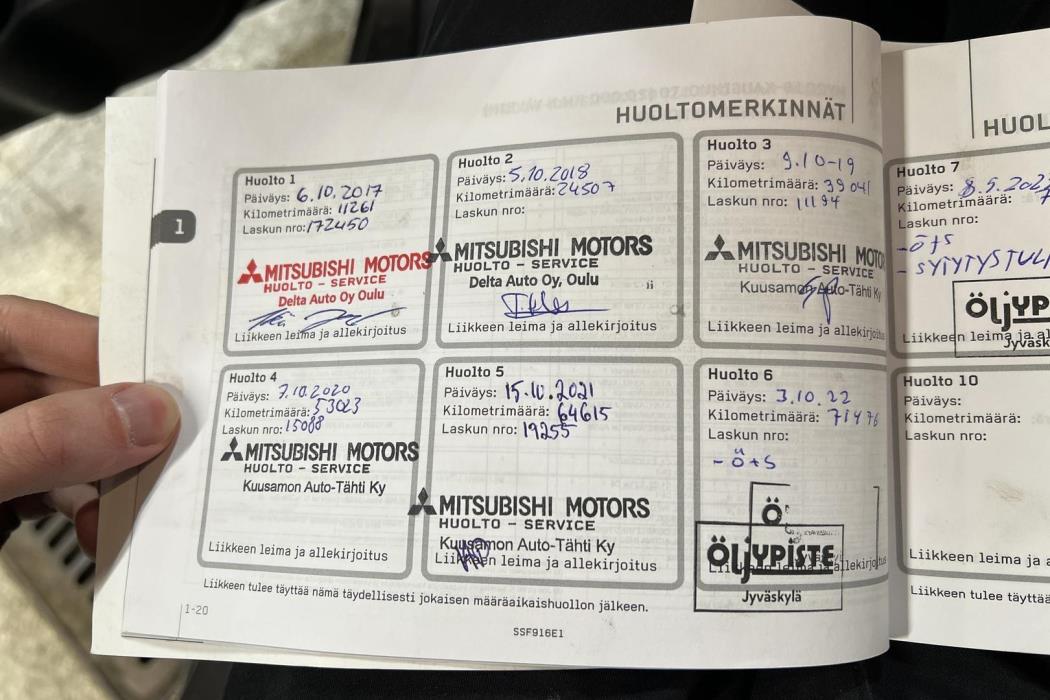 HUOLTOMERKINNÄT
Huolto 1
Päiväys: 6.10.2017
Kilometrimäärä: 11261
Laskun nro: 172450
MITSUBISHI MOTORS
HUOLTO - SERVICE
Delta Auto Oy Oulu
Liikkeen leima ja allekirjoitus
Huolto 2
Päiväys: 5.10.2018
Kilometrimäärä: 24507
Laskun nro:
MITSUBISHI MOTORS
HUOLTO - SERVICE
Delta Auto Oy, Oulu
Liikkeen leima ja allekirjoitus
Huolto 3
Päiväys: 9.10-19
Kilometrimäärä: 39041
Laskun nro: 11194
MITSUBISHI MOTO
HUOLTO - SERVICE
Kuusamon Auto-Tähti Ky
Liikkeen leima ja allekirjoitus
Huolto 4
Päiväys: 7.10.2020
Kilometrimäärä: 53023
Laskun nro: 15088
MITSUBISHI MOTORS
HUOLTO - SERVICE
Kuusamon Auto-Tähti Ky
Liikkeen leima ja allekirjoitus
Huolto 5
Päiväys: 15.10.2021
Kilometrimäärä: 64615
Laskun nro: 19255
MITSUBISHI MOTORS
HUOLTO - SERVICE
Kuusamon Auto-Tähti Ky
Liikkeen leima ja allekirjoitus
Huolto 6
Päiväys: 3.10.22
Kilometrimäärä: 71476
Laskun nro:
- Ö+S
Ö
ÖljYPISTE
Jyväskylä
Liikkeen tulee täyttää nämä täydellisesti jokaisen määräaikaishuollon jälkeen.
1-20
SSF916E1
1
HUOL
Huolto 7
Päiväys: 8.5.202
Kilometrimäärä: 7
Laskun nro:
- Ö+S
- SYTYTYSTUL
ÖljYP
Liikkeen leima ja al
Jyväsk
Huolto 10
Päiväys:
Kilometrimäärä:
Laskun nro:
Liikkeen leima ja a
Liikkeen tulee täyttää